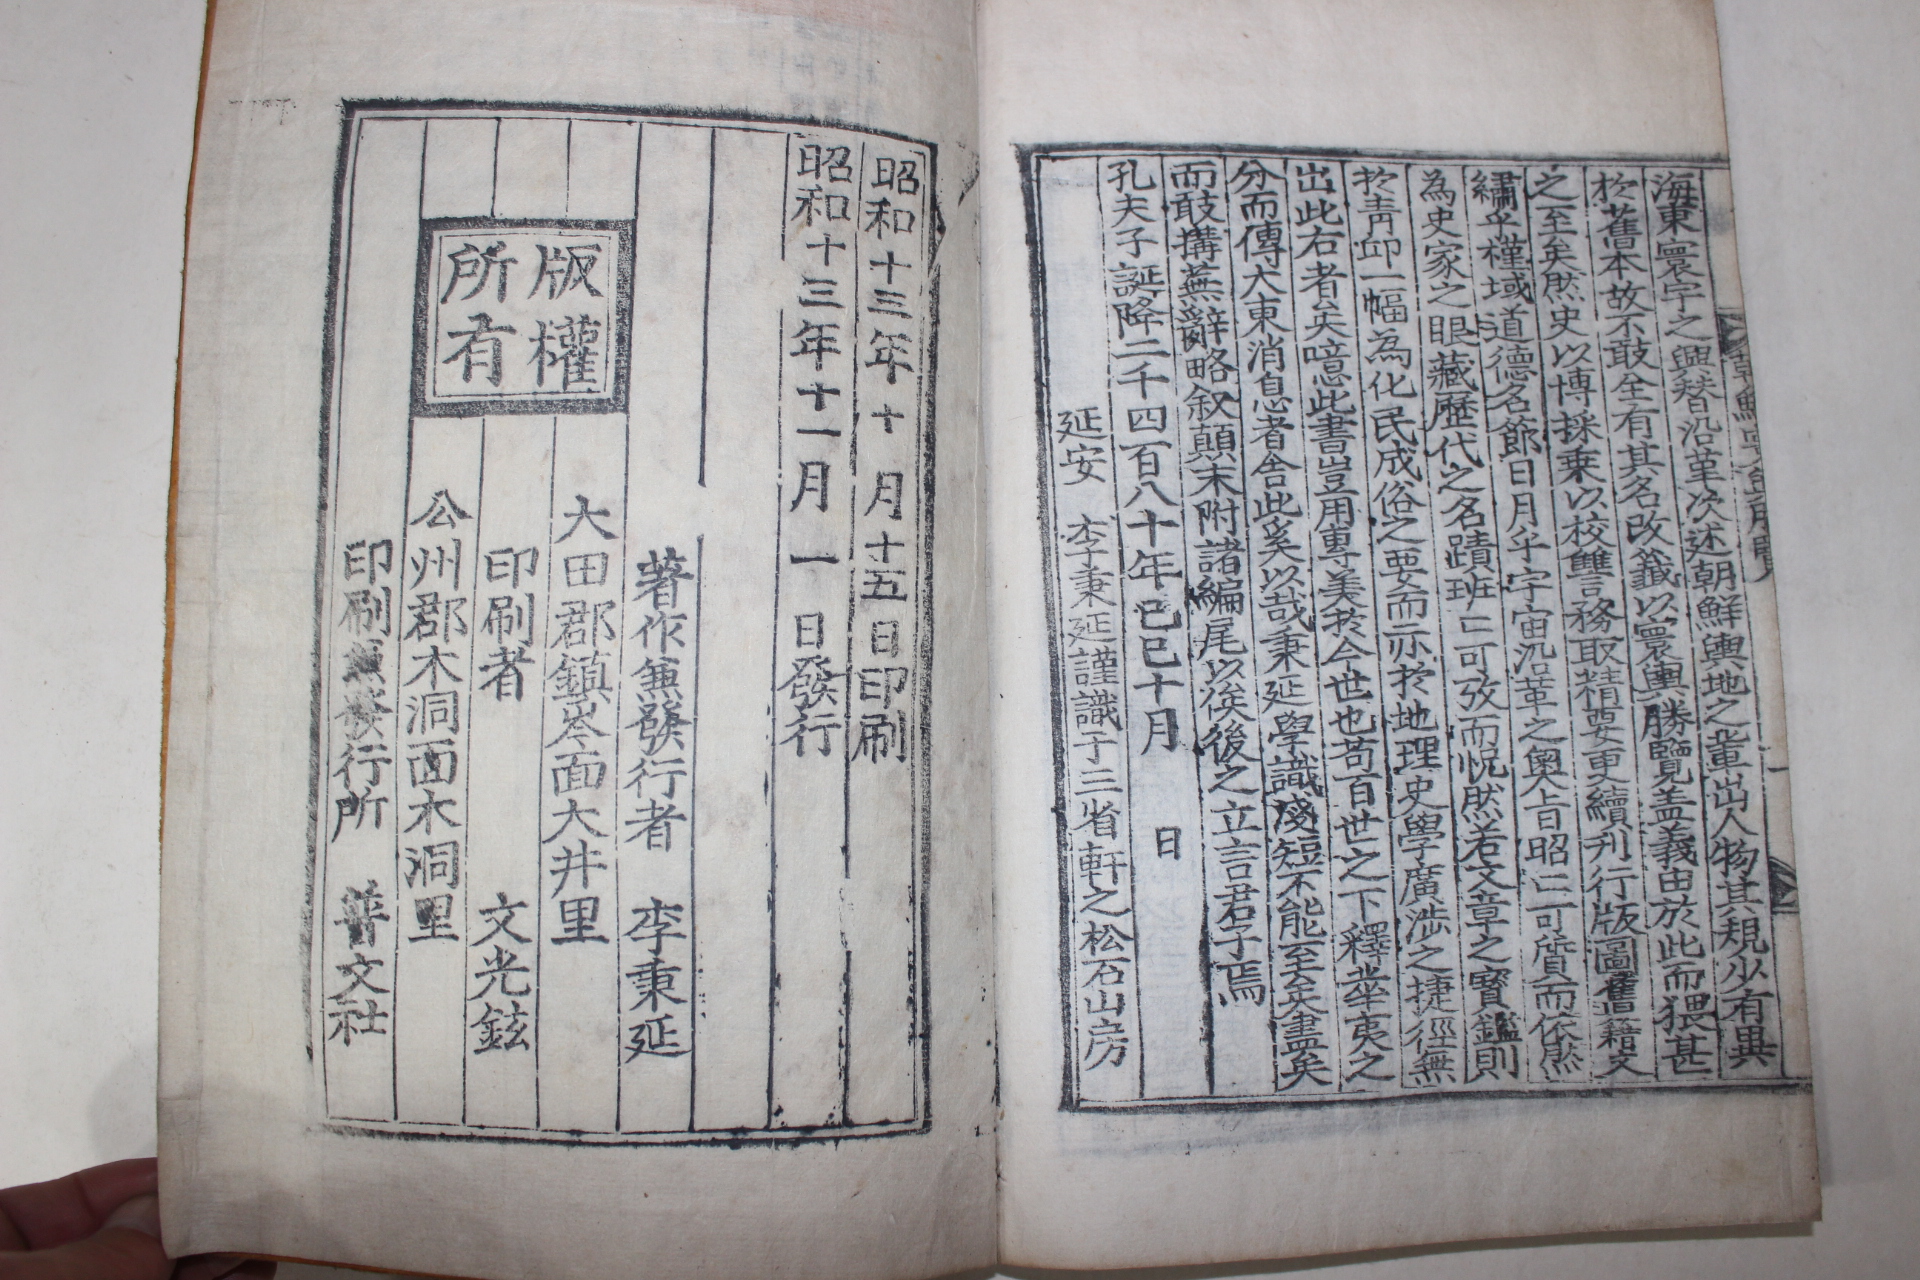 海東寰宇之興替沿革次述朝鮮輿地之輩出人物其規少有異
於舊本故不敢全有其名改籤以寰輿勝覽盖義由於此而猥甚
之至矣然史以博採乘以校讐言務取精要更續刋行版圖舊籍文
繡乎槿域道德名節日月乎宇宙沉革之奧旨昭〻可質而依然
為史家之眼藏歷代之名蹟班〻可攷而怳然若文章之寶鑑則
於靑邱一幅為化民成俗之要而亦於地理史學廣涉之捷徑無
出此右者矣噫此書豈用專美於今世也苟百世之下釋羋夷之
分而傳大東消息者舍此奚以哉秉延學識淺短不能至矣盡矣
而敢搆蕪辭略叙顛末附諸編尾以俟後之立言君子焉
孔夫子誕降二千四百八十年己巳十月 日
延安 李秉延謹識于三省軒之松石山房
昭和十三年十 月十五日印刷
昭和十三年十一月 一 日發行
著作兼發行者 李秉延
大田郡鎭岑面大井里
印刷者 文光鉉
公州郡木洞面木洞里
印刷兼發行所 普文社
版權
所有